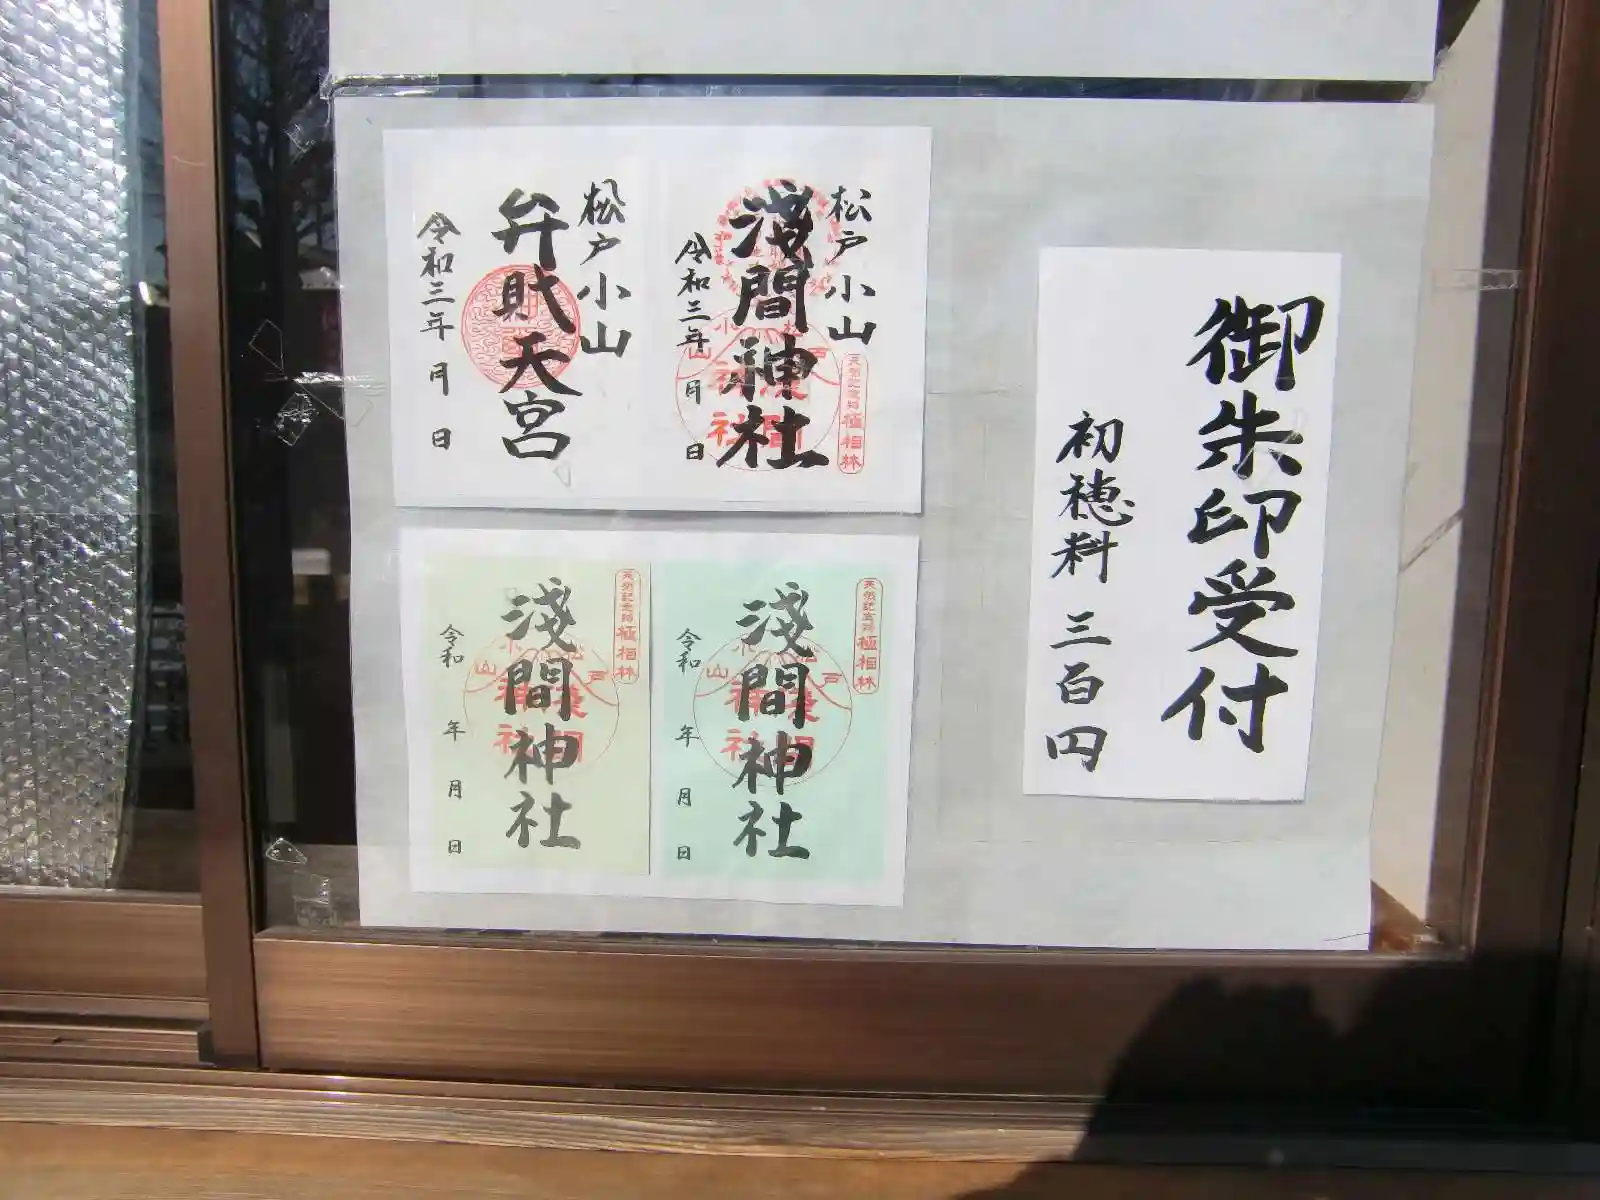 御朱印受付
初穂料 三百円
松戸小山
淺間神社
令和三年 月 日
天然記念物 極相林
松戸小山
弁財天宮
令和三年 月 日
天然記念物 極相林
淺間神社
松戸小山
令和 年 月 日
天然記念物 極相林
淺間神社
松戸小山
令和 年 月 日